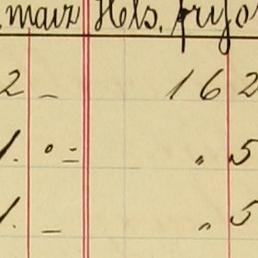 maiz Hls. frijo
2 – 162
1. 0= „ 5
1. – „ 5